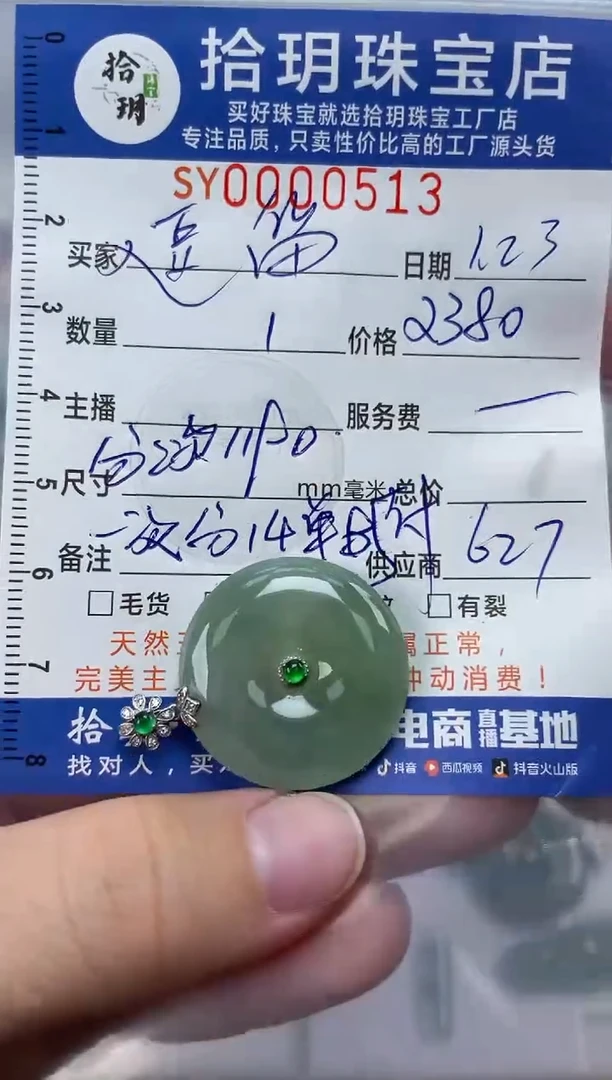 拾玥
拾玥珠宝店
买好珠宝就选拾玥珠宝工厂店
专注品质，只卖性价比高的工厂源头货
SY0000513
买家 日期 1.23
数量 1 价格 2380
主播 服务费 一
尺寸 mm毫米 总价
备注 一次分14单 供应商 627
毛货 有裂
天然 属正常，
完美主 冲动消费！
拾 电商直播基地
找对人，买 抖音 西瓜视频 抖音火山版
0
1
2
3
4
5
6
7
8